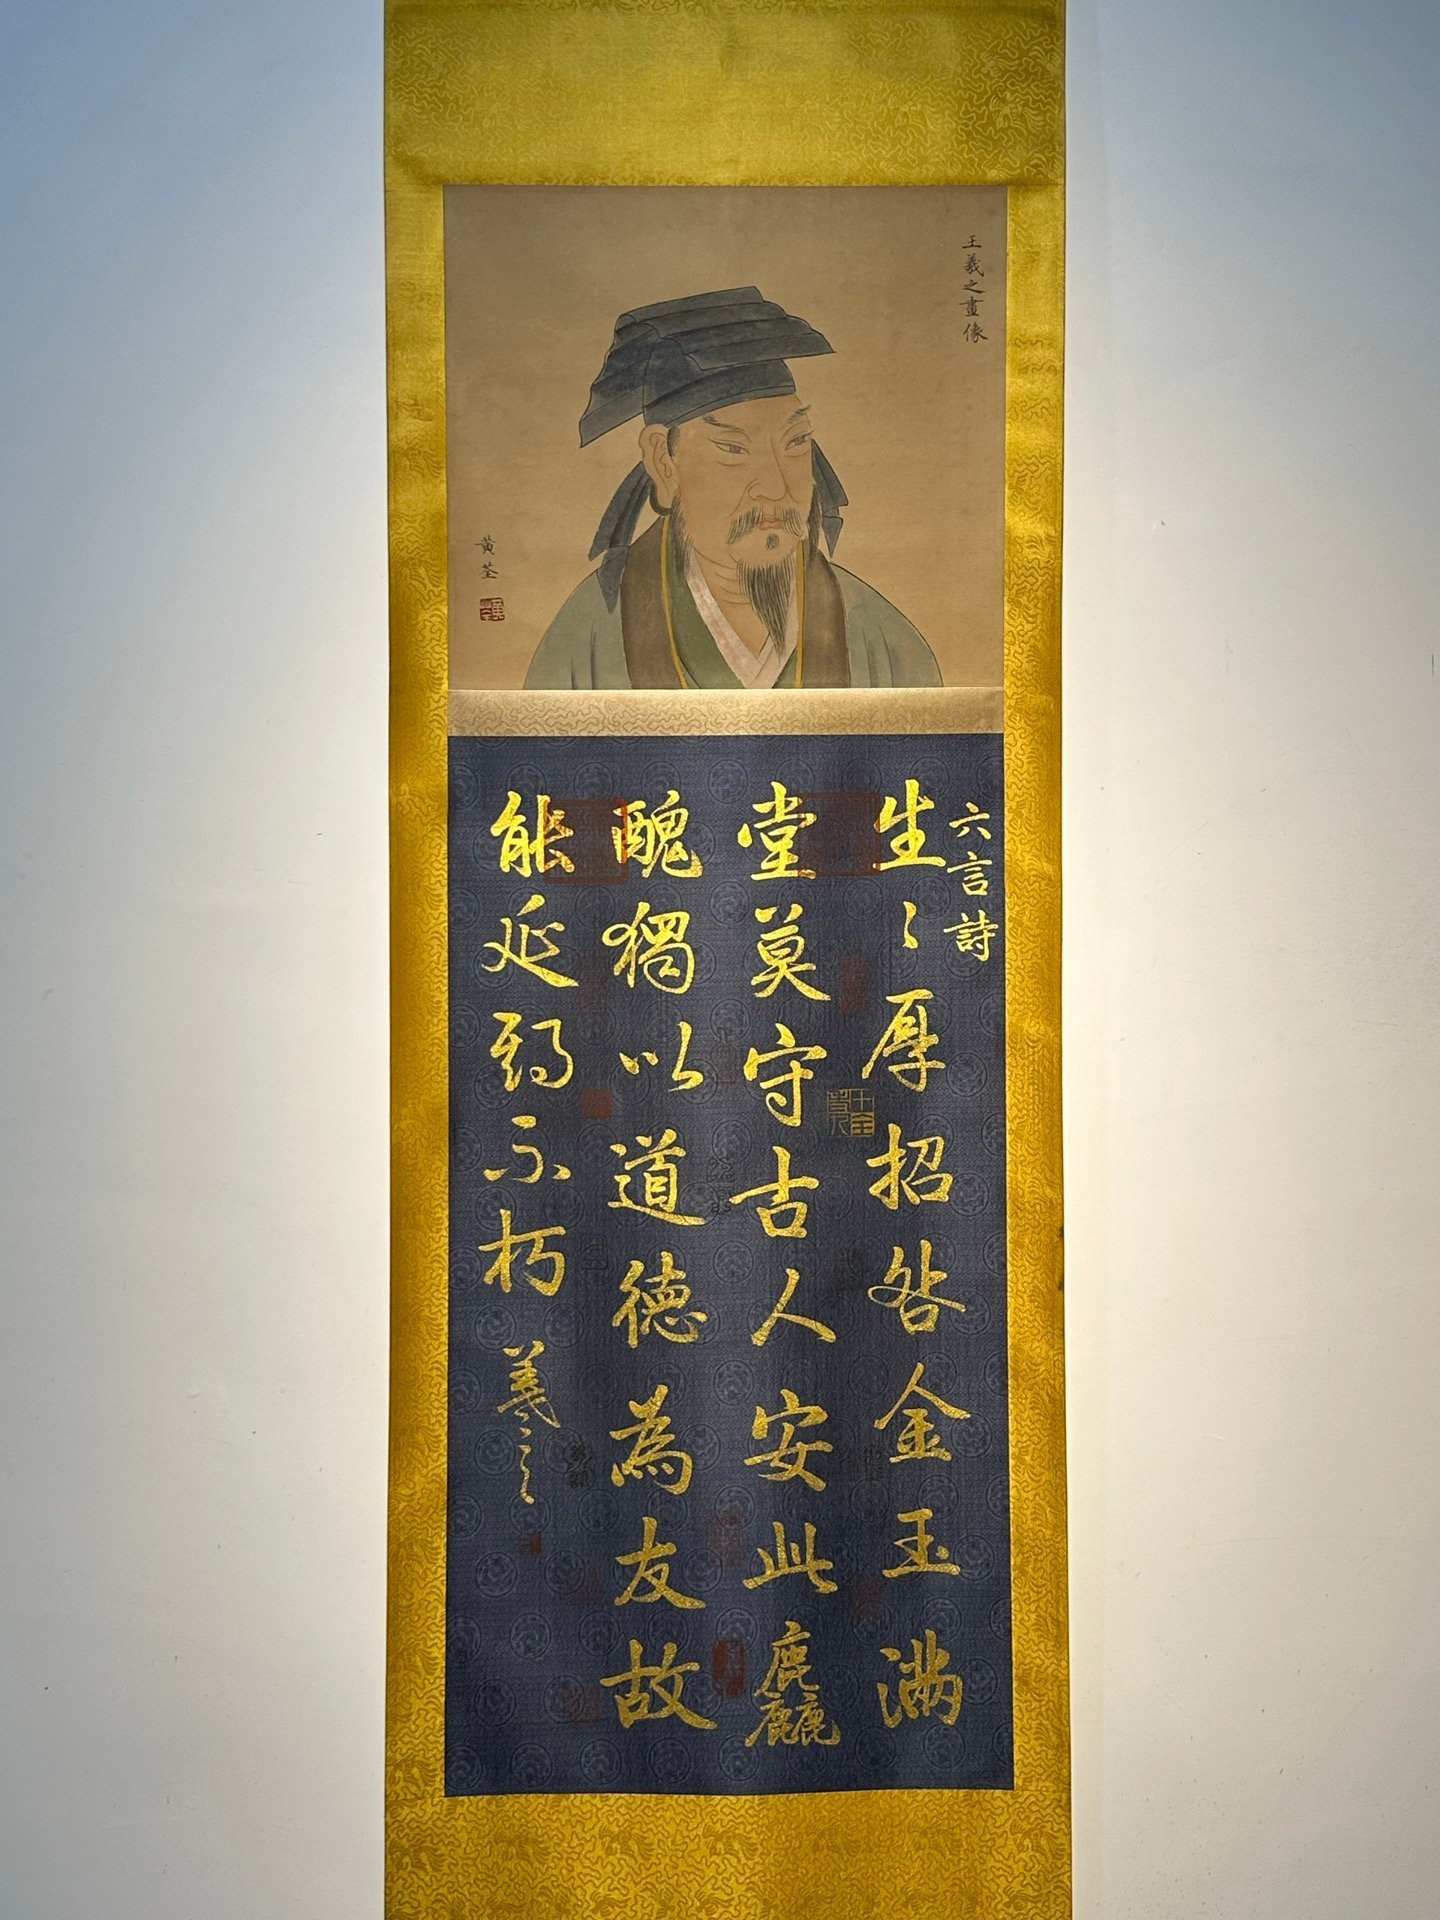 王羲之畫像
黃荃
六言詩
生〻厚招咎金玉滿
堂莫守古人安此麤
醜獨以道德為友故
能延期不朽
羲之